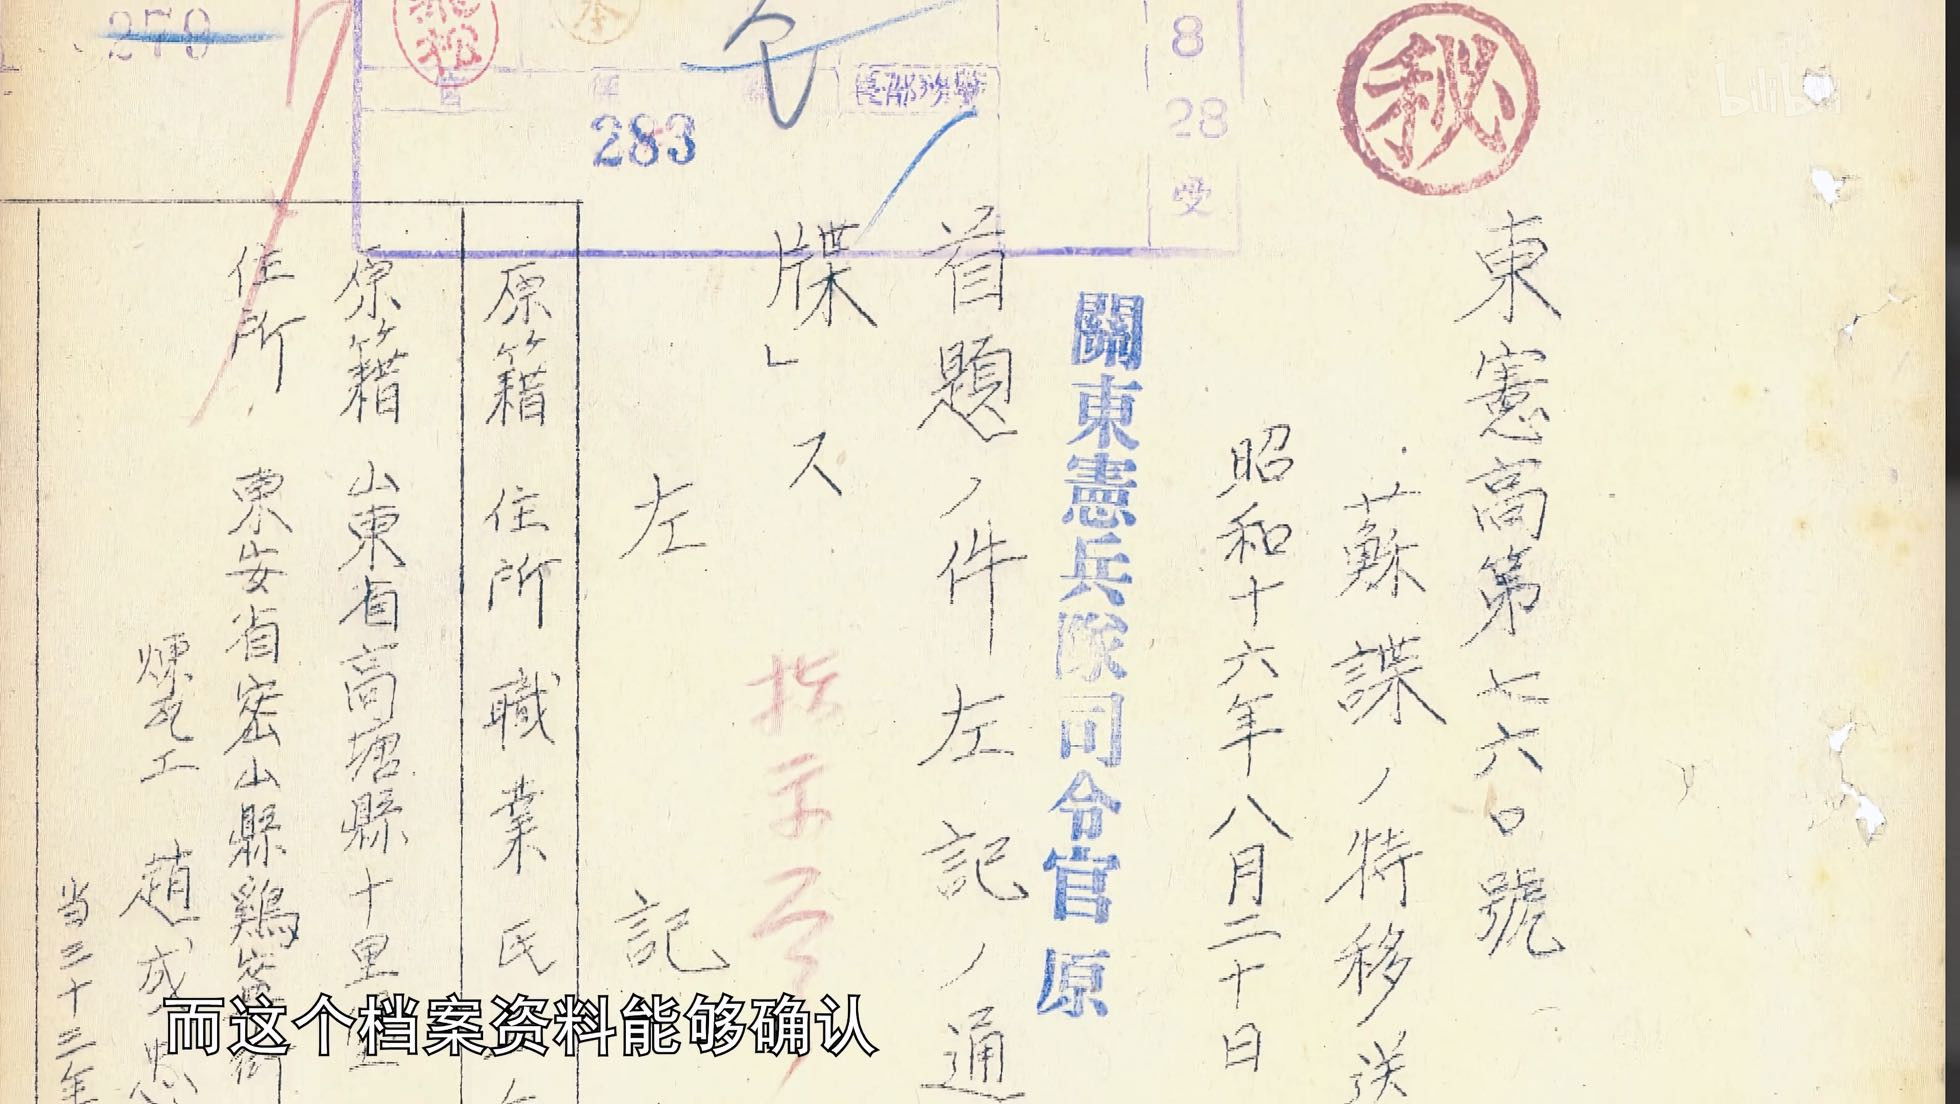 秘
東憲高第七六〇號
蘇諜ノ特移送
昭和十六年八月二十日
關東憲兵隊司令官 原
首題ノ件左記ノ通
牒」ス
指示
左 記
原籍 住所 職業 氏
原籍 山東省高塘縣十里
住所 東安省密山縣鶏
煉瓦工 趙成忠
当三十三年
8
28
受
283
279
而这个档案资料能够确认
bilibili